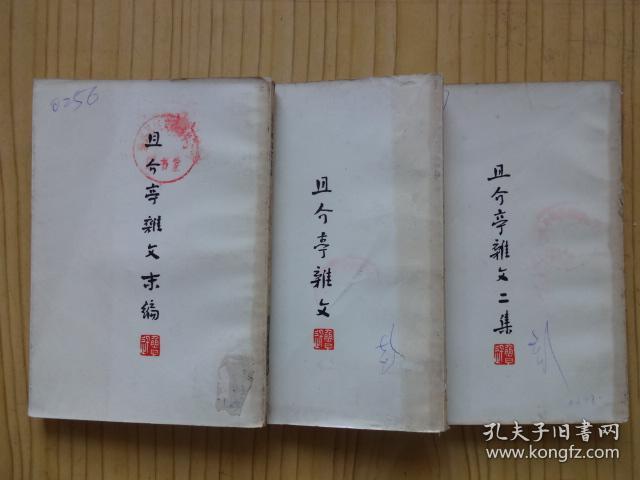 0=56
且介亭雜文末編
且介亭雜文
且介亭雜文二集
孔夫子旧书网
www.kongfz.com